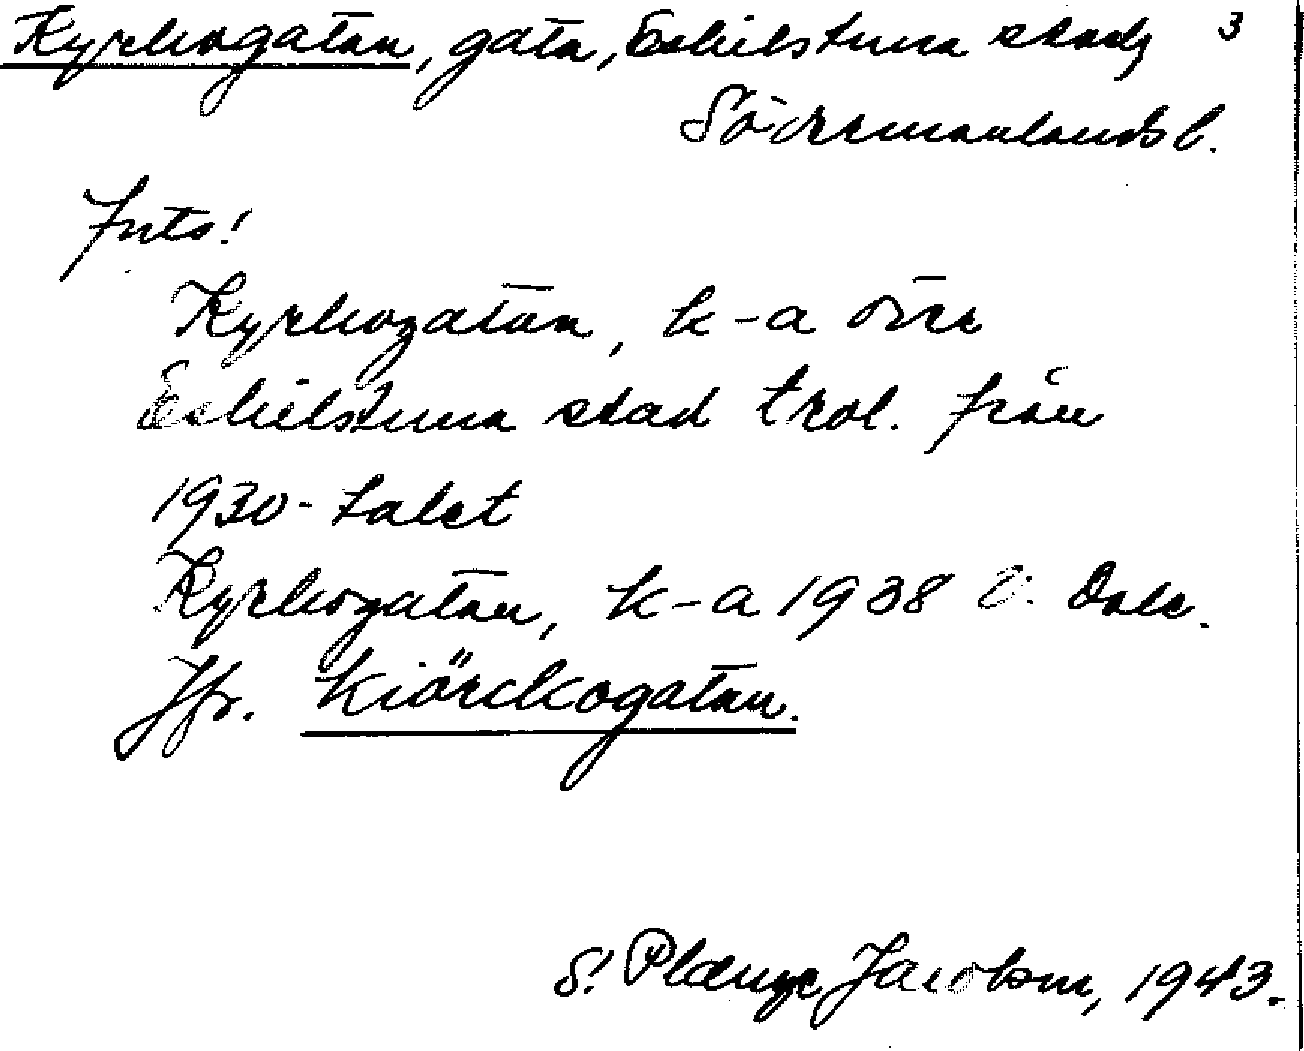 Kyrkogatan, gata, Eskilstuna stad, 3
Södermanlands l.
Förts!
Kyrkogatan, k-a över
Eskilstuna stad trol. från
1930-talet
Kyrkogatan, k-a 1938 i: Dale.
Jfr. Kiörckogatan.
S. Plænge Jacobson, 1943.